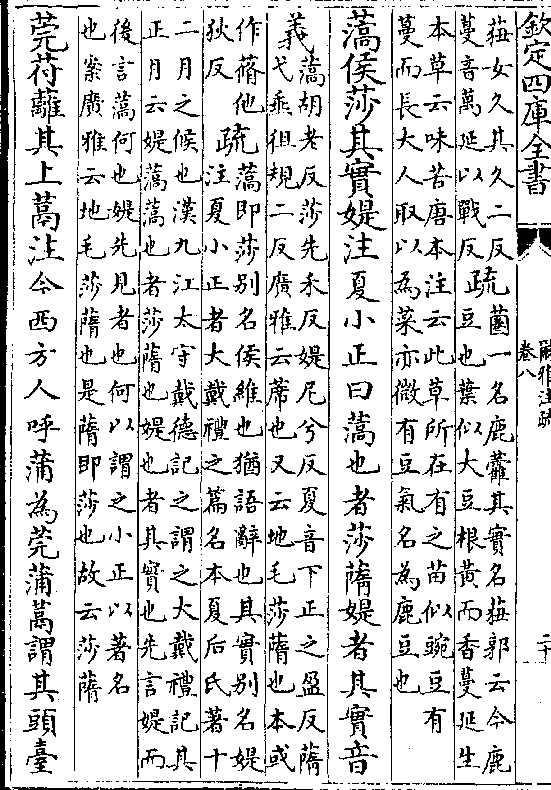 欽定四庫全書
爾雅注疏
卷八
二十
莥女久其久二反
蔓音萬延以戰反
疏
蔨一名鹿藿其實名莥郭云今鹿
豆也葉似大豆根黄而香蔓延生
本草云味苦唐本注云此草所在有之苗似豌豆有
蔓而長大人取以為菜亦微有豆氣名為鹿豆也
薃侯莎其實媞注夏小正曰薃也者莎䔺媞者其實音
義
薃胡老反莎先禾反媞尼兮反夏音下正之盈反䔺
弋垂徂規二反廣雅云蓆也又云地毛莎䔺也本或
作蓨他
狄反
疏
薃即莎别名侯維也猶語辭也其實别名媞
注夏小正者大戴禮之篇名本夏后氏著十
二月之候也漢九江太守戴德記之謂之大戴禮記其
正月云媞薃薃也者莎䔺也媞也者其實也先言媞而
後言薃何也媞先見者也何以謂之小正以著名
也案廣雅云地毛莎䔺也是䔺即莎也故云莎䔺
莞苻蘺其上蒚注今西方人呼蒲為莞蒲蒚謂其頭臺